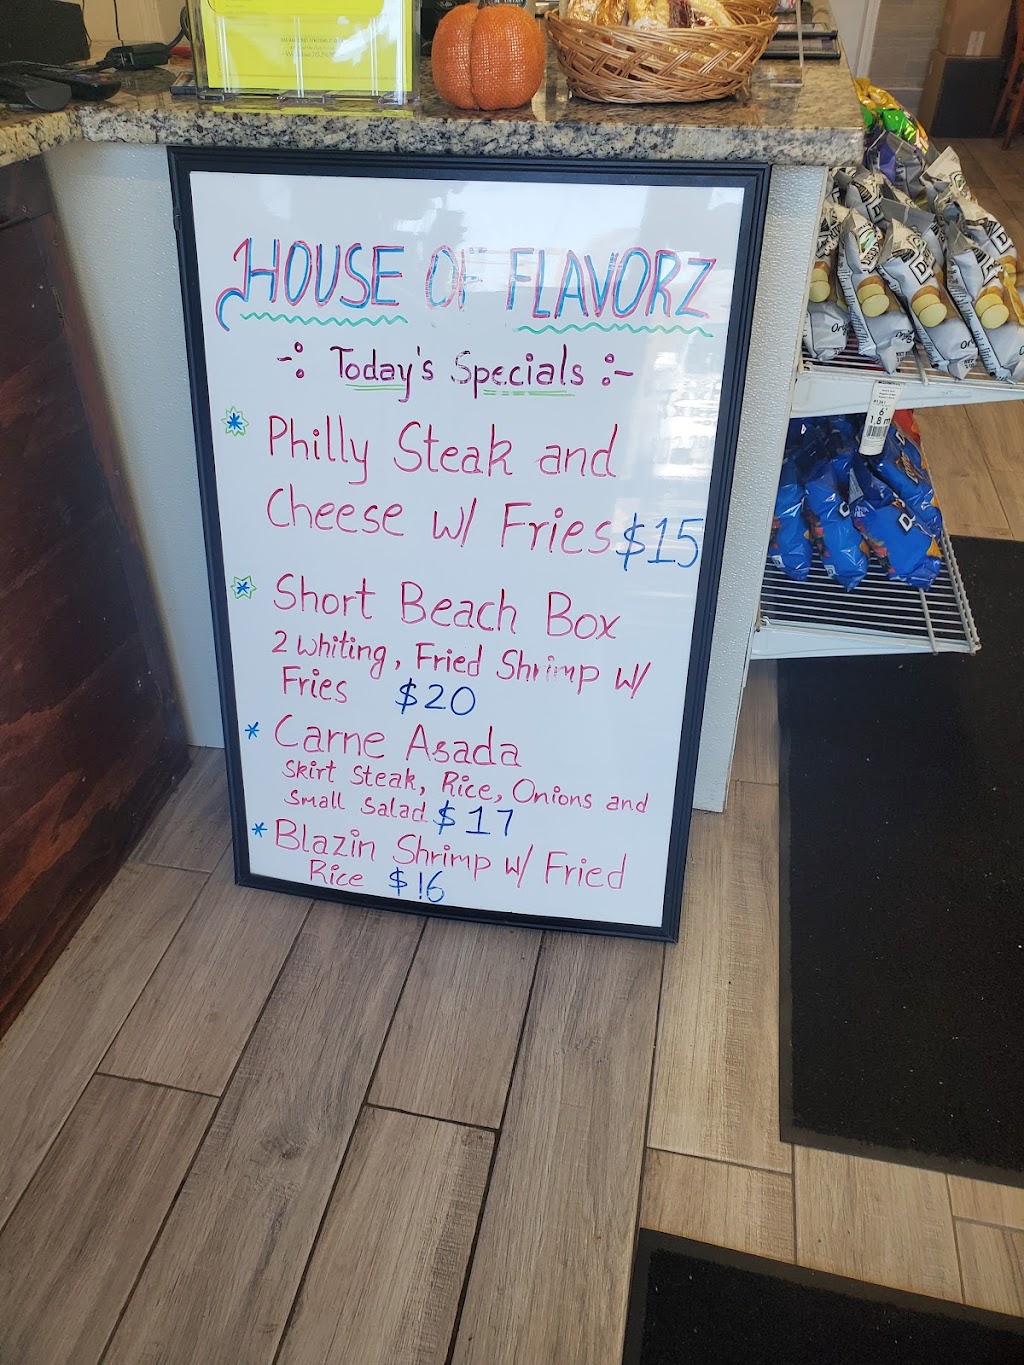 HOUSE OF FLAVORZ
Today's Specials
Philly Steak and
Cheese w/ Fries $15
Short Beach Box
2 Whiting, Fried Shrimp w/
Fries $20
Carne Asada
Skirt Steak, Rice, Onions and
Small Salad $17
Blazin Shrimp w/ Fried
Rice $16